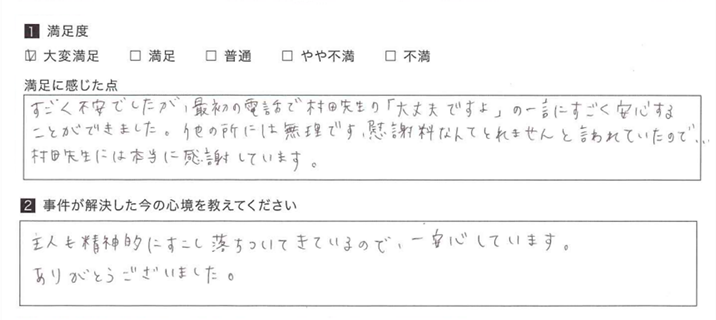 1 満足度
☑ 大変満足 □ 満足 □ 普通 □ やや不満 □ 不満
満足に感じた点
すごく不安でしたが、最初の電話で村田先生の「大丈夫ですよ」の一言にすごく安心する
ことができました。他の所には無理です、慰謝料なんてとれませんと言われていたので…
村田先生には本当に感謝しています。
2 事件が解決した今の心境を教えてください
主人も精神的にすこし落ちついてきているので、一安心しています。
ありがとうございました。